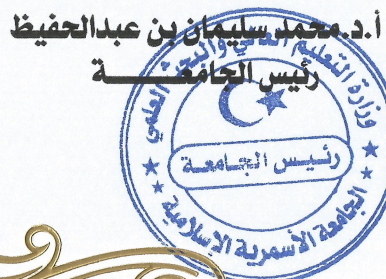 أ.د.محمد سليمان بن عبدالحفيظ
رئيس الجامعـــــــة
وزارة التعليم العالي والبحث العلمي
رئــيــس الجــامعــة
الجامعة الأسمرية الإسلامية